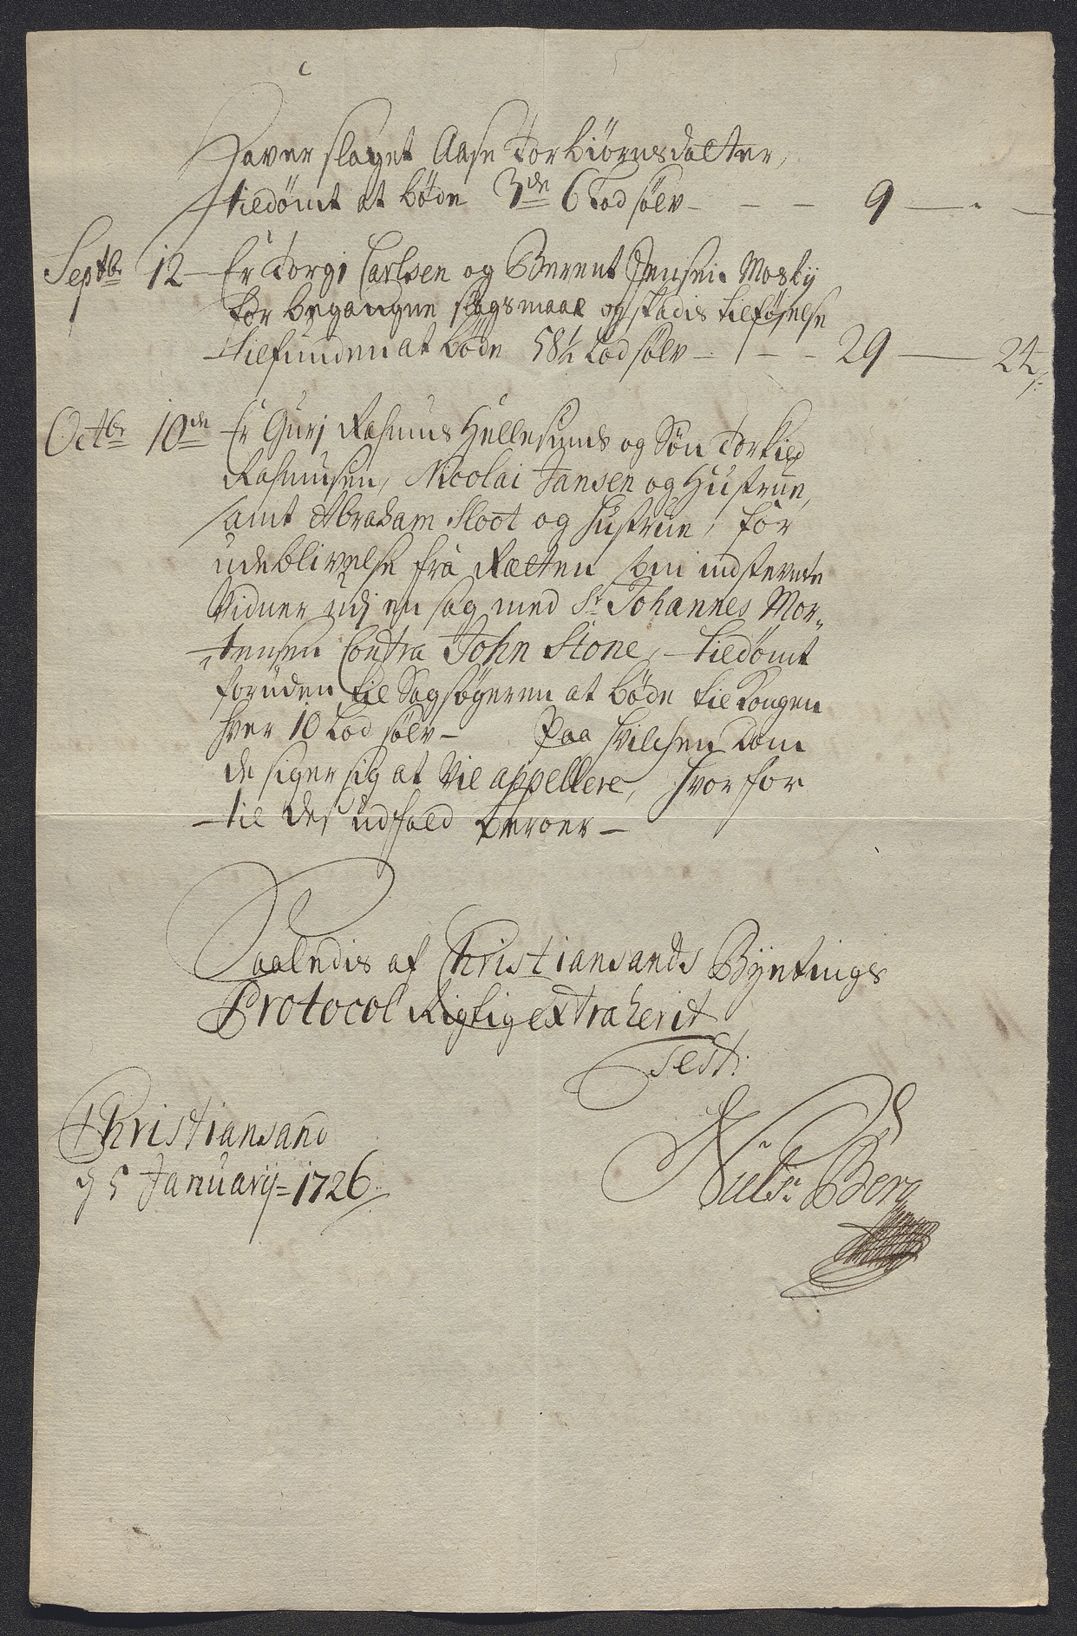 Haver slaget Aase Torbiørnsdatter,
tildømt at bøde 3de 6 Lod sølv - - - 9 - . -
Septbr 12 Er Torgi Carlsen og Berent Jensen Mosby
for begangne slagsmaal og skadis tilføielse
tilfunden at bøde 58½ Lod sølv - - - 29 - 24
Octbr 10de Er Gurj Rasmus Hellesunds og Søn Torkild
Rasmusen, Nicolai Jansen og Hustrue,
samt Abraham Sloot og Hustrue, for
udeblivelse fra Rætten som indstevnte
Vidner udj en sag med Sr Johannes Mor„
„tensen Contra John Stone, tildømt
foruden til Sagsøgeren at bøde til Kongen
hver 10 Lod sølv - Paa hvilchen Dom
de siger sig at vil appellere, hvorfor
til des udfald beroer -
Saaledis af Christiansands Byetings
Protocol Rigtig extraherit
Test:
Christiansand
d 5 January = 1726
Niels Berg